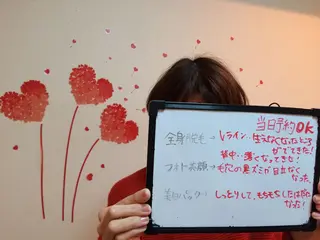 当日予約OK
全身脱毛→Vライン…生えなくなったところ
がでてきた!
背中…薄くなってきた!
フォト美顔→毛穴の黒ズミが目立たなく
なった
美白パック→しっとりして、もちもちしたはだに
なった!